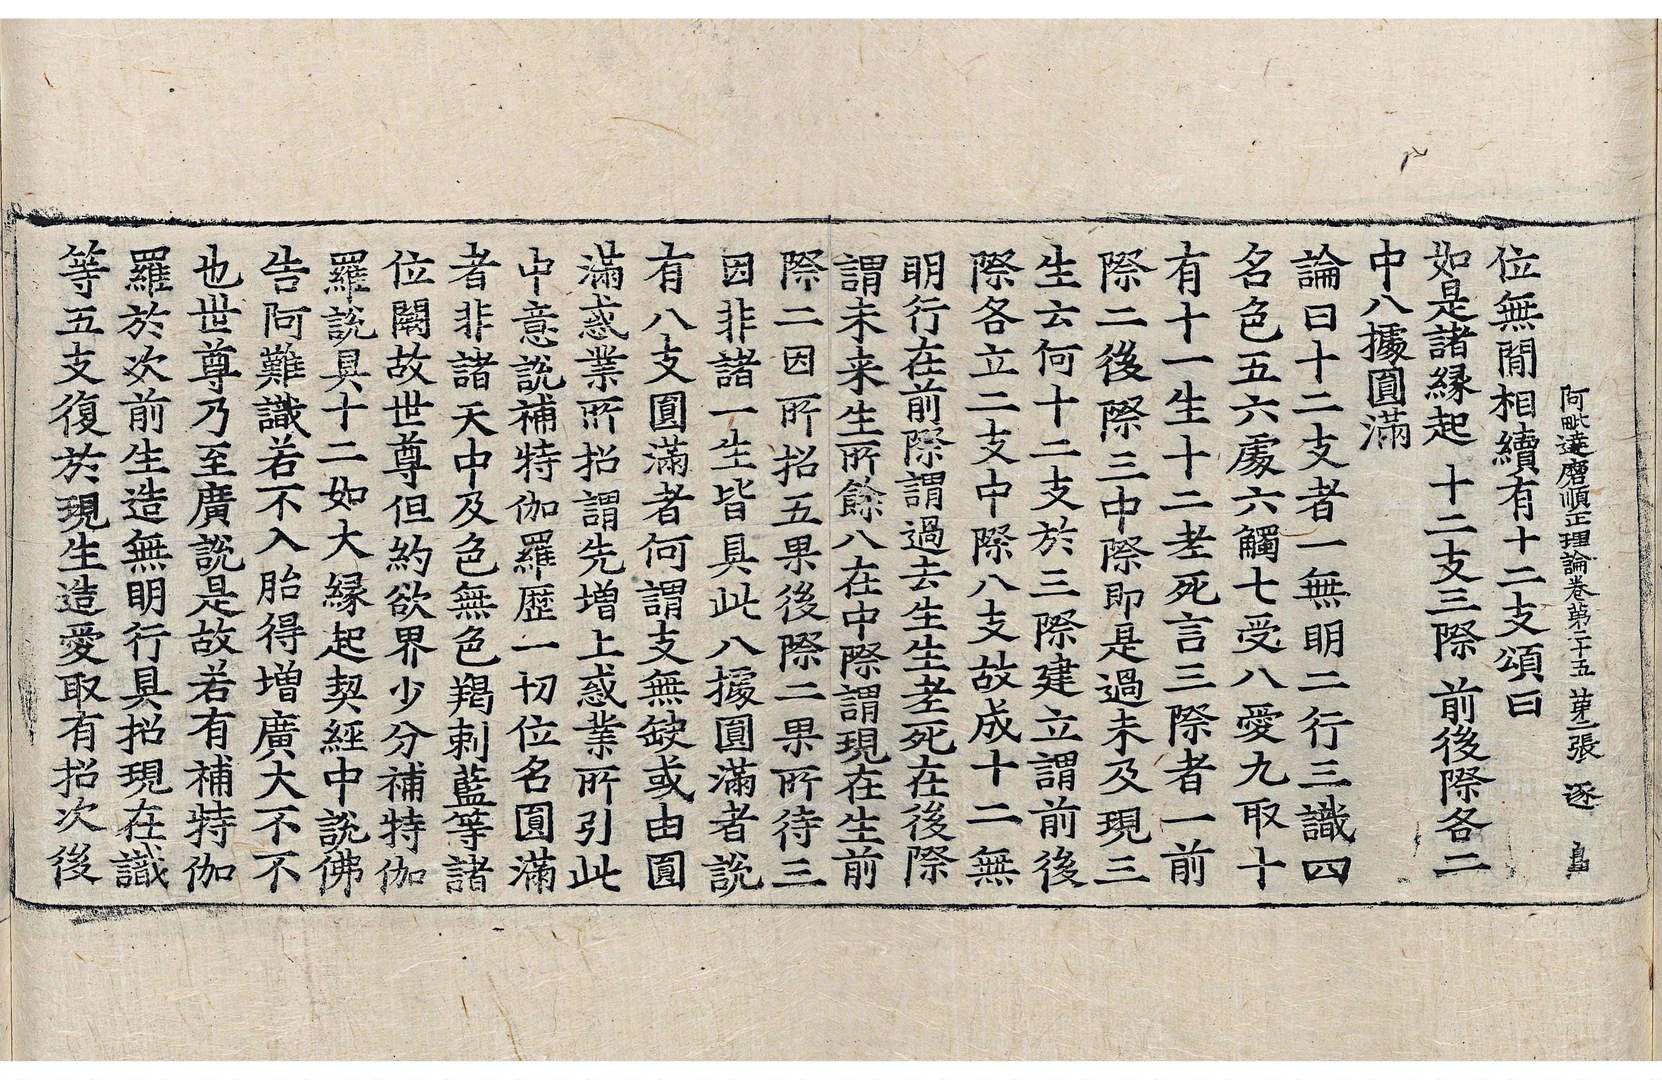 阿毗達磨順正理論卷第二十五 第二張 逐
位無間相續有十二支頌曰
如是諸緣起 十二支三際 前後際各二
中八據圓滿
論曰十二支者一無明二行三識四
名色五六處六觸七受八愛九取十
有十一生十二老死言三際者一前
際二後際三中際即是過未及現三
生云何十二支於三際建立謂前後
際各立二支中際八支故成十二無
明行在前際謂過去生生老死在後際
謂未来生所餘八在中際謂現在生前
際二因所招五果後際二果所待三
因非諸一生皆具此八據圓滿者說
有八支圓滿者何謂支無缺或由圓
滿惑業所招謂先增上惑業所引此
中意說補特伽羅歷一切位名圓滿
者非諸天中及色無色羯剌藍等諸
位闕故世尊但約欲界少分補特伽
羅說具十二如大緣起契經中說佛
告阿難識若不入胎得增廣大不不
也世尊乃至廣說是故若有補特伽
羅於次前生造無明行具招現在識
等五支復於現生造愛取有招次後